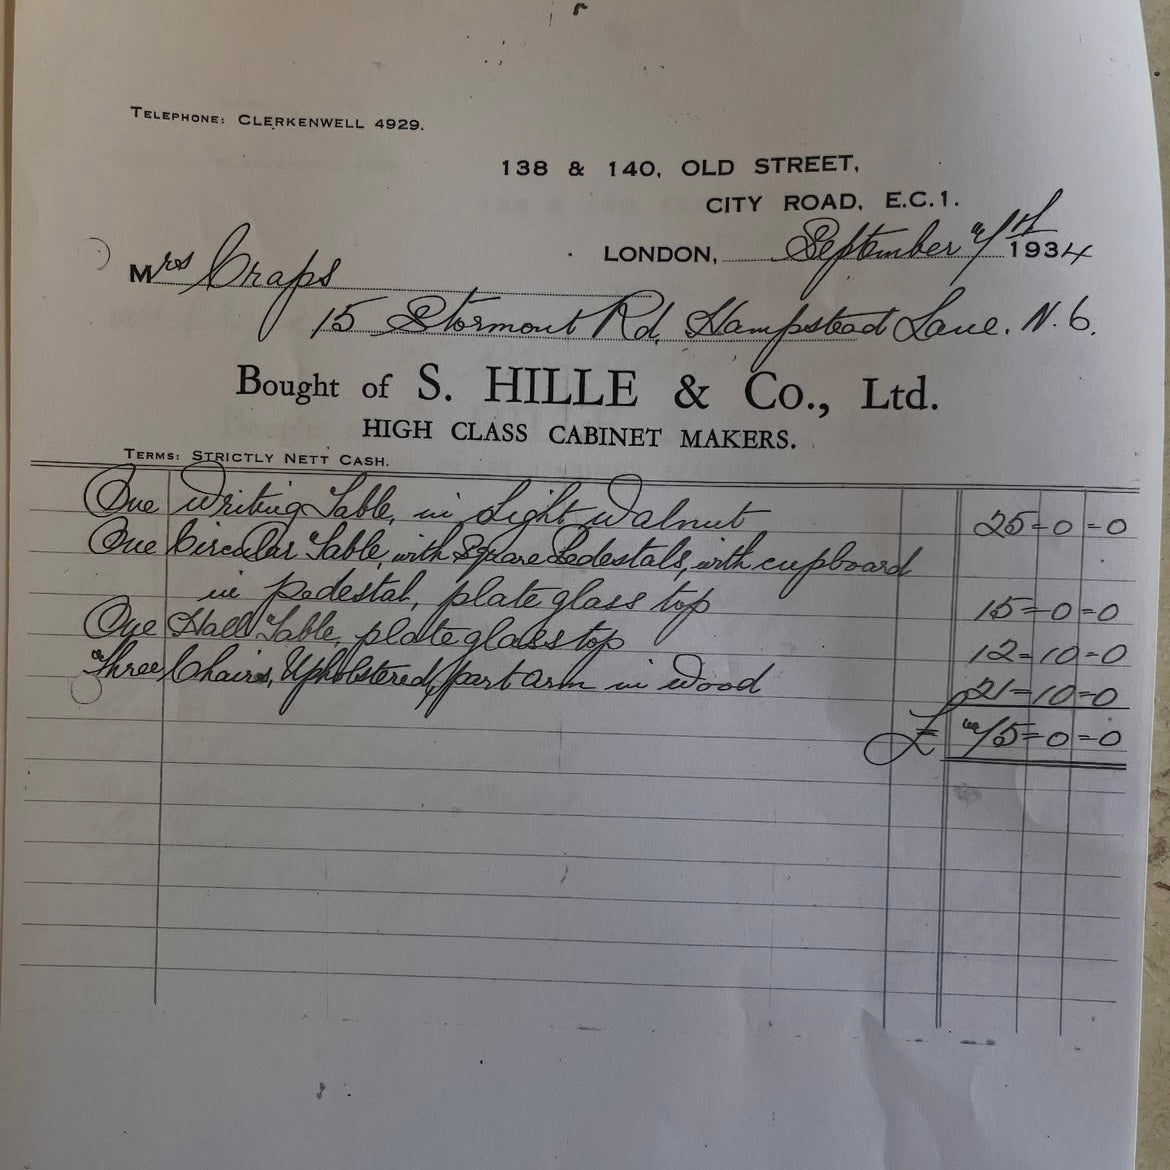 TELEPHONE: CLERKENWELL 4929.
138 & 140, OLD STREET,
CITY ROAD, E.C.1.
LONDON, September 7th 1934
Mrs Craps
15 Stormont Rd, Hampstead Lane. N. 6.
Bought of S. HILLE & Co., Ltd.
HIGH CLASS CABINET MAKERS.
TERMS: STRICTLY NETT CASH.
One Writing Table, in Light Walnut 25-0-0
One Circular Table, with Square Pedestals, with cupboard
in pedestal, plate glass top 15-0-0
One Hall Table, plate glass top 12-10-0
Three Chairs, Upholstered, part arm in wood 21-10-0
£ 75-0-0